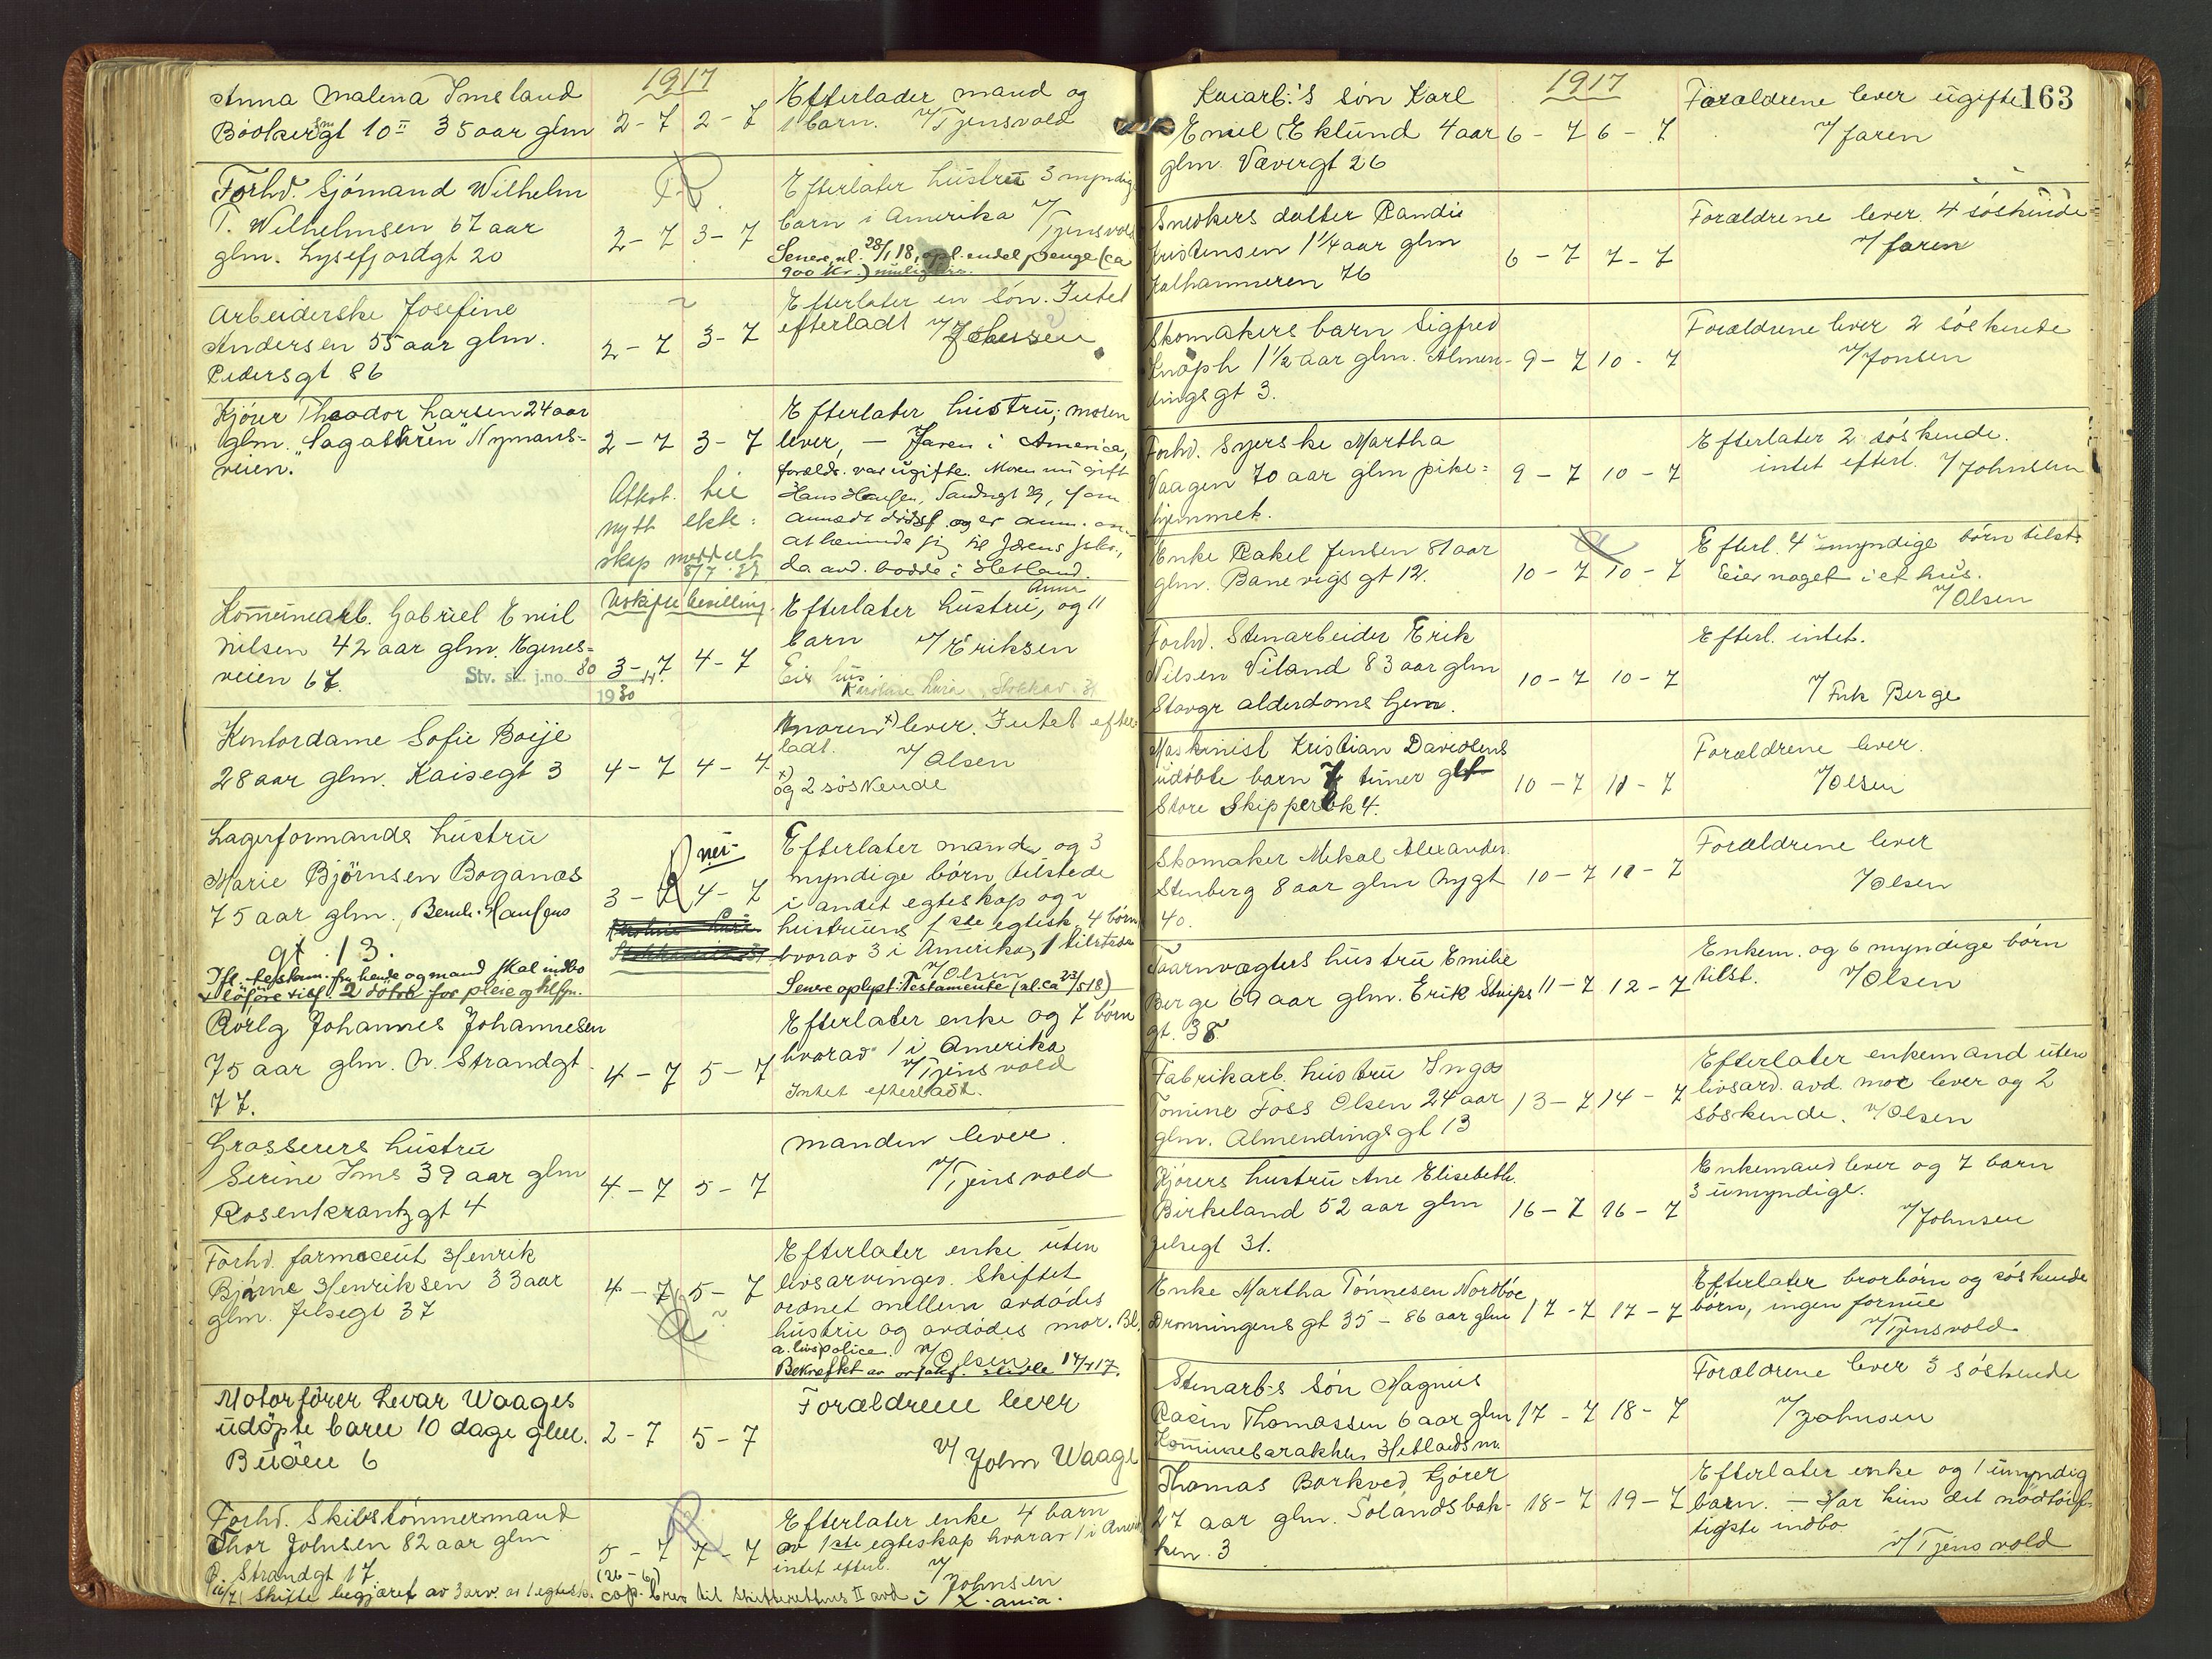 1917
Anna Malena Imsland
Bödkergt 10 II 35 aar glm
2-7 2-7
Efterlader mand og
1 barn. v/Tjensvold
Forhv. Sjömand Wilhelm
T. Wilhelmsen 67 aar
glm. Lysefjordgt 20
2-7 3-7
Efterlater hustru 3 myndig
barn i Amerika v/
Tjensvold
Senere, nl. 28/1 18, opl. endel penge (ca
900 Kr.)
Arbeiderske Josefine
Andersen 55 aar glm.
Pedersgt 86
2-7 3-7
Efterlater en sön. Intet
efterladt v/
Kjörer Theodor Larsen 24 aar
glm. "Sagatun" Nymans-
veien.
2-7 3-7
nytt ekte-
skap
Efterlater hustru; moren
lever, - Faren i Amerika,
foreldr. var ugifte. Moren nu gift
da avd. bodde i Hetland.
Kommunearb. Gabriel Emil
Nilsen 42 aar glm. Egenes-
veien 67.
Stv. sk. j.no. 80
1930
Uskiftebevilling
3-7 4-7
Anna
Efterlater hustru, og 11
barn v/Eriksen
Eier hus
Kontordame Sofie Boije
28 aar glm. Kaisegt 3
4-7 4-7
moren x) lever. Intet efter-
ladt. v/Olsen
x)
og 2 söskende
Lagerformands hustru
Marie Björnsen Boganæs
75 aar glm. Bernh. Hansens
gt. 13.
nei-
3-7 4-7
Ifl. testam. fra hende og mand skal indbo
Efterlater mand og 3
myndige börn tilstede
i andet egteskap og
hustruens 1ste egtesk. 4 börn
hvorav 3 i Amerika, 1 tilstede
v/Olsen
Senere oplyst: Testamente (nl. ca 23/5 18)
Rörlg Johannes Johannesen
75 aar glm. N. Strandgt
77.
4-7 5-7
Efterlater enke og 7 börn
hvorav 1 i Amerika
v/Tjensvold
Intet efterladt.
Grosserers hustru
Serine Ims 39 aar glm
Rosenkrantzgt 4
4-7 5-7
manden lever.
v/Tjensvold
Forhv. farmaceut Henrik
Bjarne Henriksen 33 aar
glm. Jelsegt 37
4-7 5-7
Efterlater enke uten
livsarvinger. Skiftet
ordnet mellem avdödes
hustru og avdödes mor. Bl.
a. livspolice. v/Olsen
Motorförer Levar Waages
udöpte barn 10 dage glm.
Buöen 6
2-7 5-7
Forældrene lever
v/ John Waage
Forhv. Skibstömmermand
Thor Johnsen 82 aar glm
Ö. Strandgt 17.
5-7 7-7
(26-6)
Efterlater enke 4 barn
av 1ste egteskap hvorav 1 i Amer
intet efterl. v/
Johnsen
Skifte begjært av 3 arv. av 1 egtesk. cop. brev til Skifterettens II avd i Kr.ania.
163
1917
Kaiarb.'s sön Karl
Emil Eklund 4 aar
glm. Vævergt 26
6-7 6-7
Forældrene lever ugifte
v/ faren
Snedkers datter Randi
Kristensen 1 1/4 aar glm
Kalhammeren 76
6-7 7-7
Forældrene lever. 4 söskende-
v/ faren
Skomakers barn Sigfred
Knoph 1 1/2 aar glm. Almen-
ningsgt 3.
9-7 10-7
Forældrene lever 2 söskende
v/Jonsen
Forhv. Syerske Martha
Vaagen 70 aar glm pike-
hjemmet.
9-7 10-7
Efterlater 2 söskende.
intet efterl. v/Johnsen
Enke Rakel Jensen 81 aar
glm. Banevigsgt 12.
10-7 10-7
Efterl. 4 myndige börn tilst.
Eier noget i et hus.
v/Olsen
Forhv. Stenarbeider Erik
Nilsen Viland 83 aar glm
Stavgr alderdoms hjem.
10-7 10-7
Efterl. intet.
v/ Frk Berge
Maskinist Kristian Davidsens
udöbte barn 7 timer glm
Store Skipperbk 4.
10-7 11-7
Forældrene lever.
v/Olsen
Skomaker Mikal Alexander
Stenberg 8 aar glm Nygt
40.
10-7 11-7
Forældrene lever
v/Olsen
Taarnvægters hustru Emilie
Berge 69 aar glm. Erik Skeips
gt. 38.
11-7 12-7
Enkem. og 6 myndige börn
tilst. v/Olsen
Fabrikarb. hustru Inga
Tomine Foss Olsen 24 aar
glm. Almendingsgt 13
13-7 14-7
Efterlater enkemand uten
livsarv. avd. mor lever og 2
söskende. v/Olsen
Kjörers hustru Ane Elisabeth
Birkeland 52 aar glm
Jelsegt 31.
16-7 16-7
Enkemand lever og 7 barn
3 umyndige.
v/Johnsen
Enke Martha Tönnesen Nordböe
Dronningensgt 35 - 86 aar glm
17-7 17-7
Efterlater brorbörn og söskende
börn, ingen formue
v/Tjensvold
Stenarb-s Sön Magnus
Rasin Thomassen 6 aar glm
Kommunebarakken Hetlandsm.
17-7 18-7
Forældrene lever 3 söskende
v/Johnsen
Thomas Barkved Kjörer
27 aar glm. Solandsbak-
ken 3
18-7 19-7
Efterlater enke og 1 umyndig
barn. - Har kun det nödtörf-
tigste indbo.
v/Tjensvold